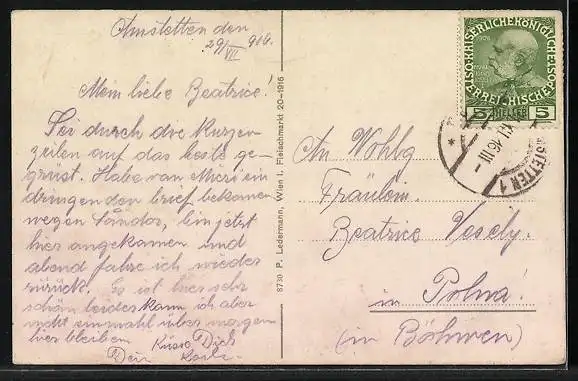 Amstetten den
29/VII 916.
Mein liebe Beatrice!
Sei durch die kurzen
zeilen auf das beste ge-
grüst. Habe van Mizi ein
dringenden brief bekomen
wegen Sándor, bin jetzt
hier angekomen und
abend fahre ich wieder
zürück. Es ist hier sehr
schön beides kann ich aber
nicht einmahl über morgen
hier bleiben. Küsse Dich
Dein
8730 P. Ledermann, Wien I. Fleischmarkt 20-1916
KAISERLICHE KÖNIGLICHE ÖSTERREICHISCHE POST
5 HELLER 5
AMSTETTEN 1
An Wohlg
Fräulein
Beatrice Vesely.
in Polna!
(in Böhmen)